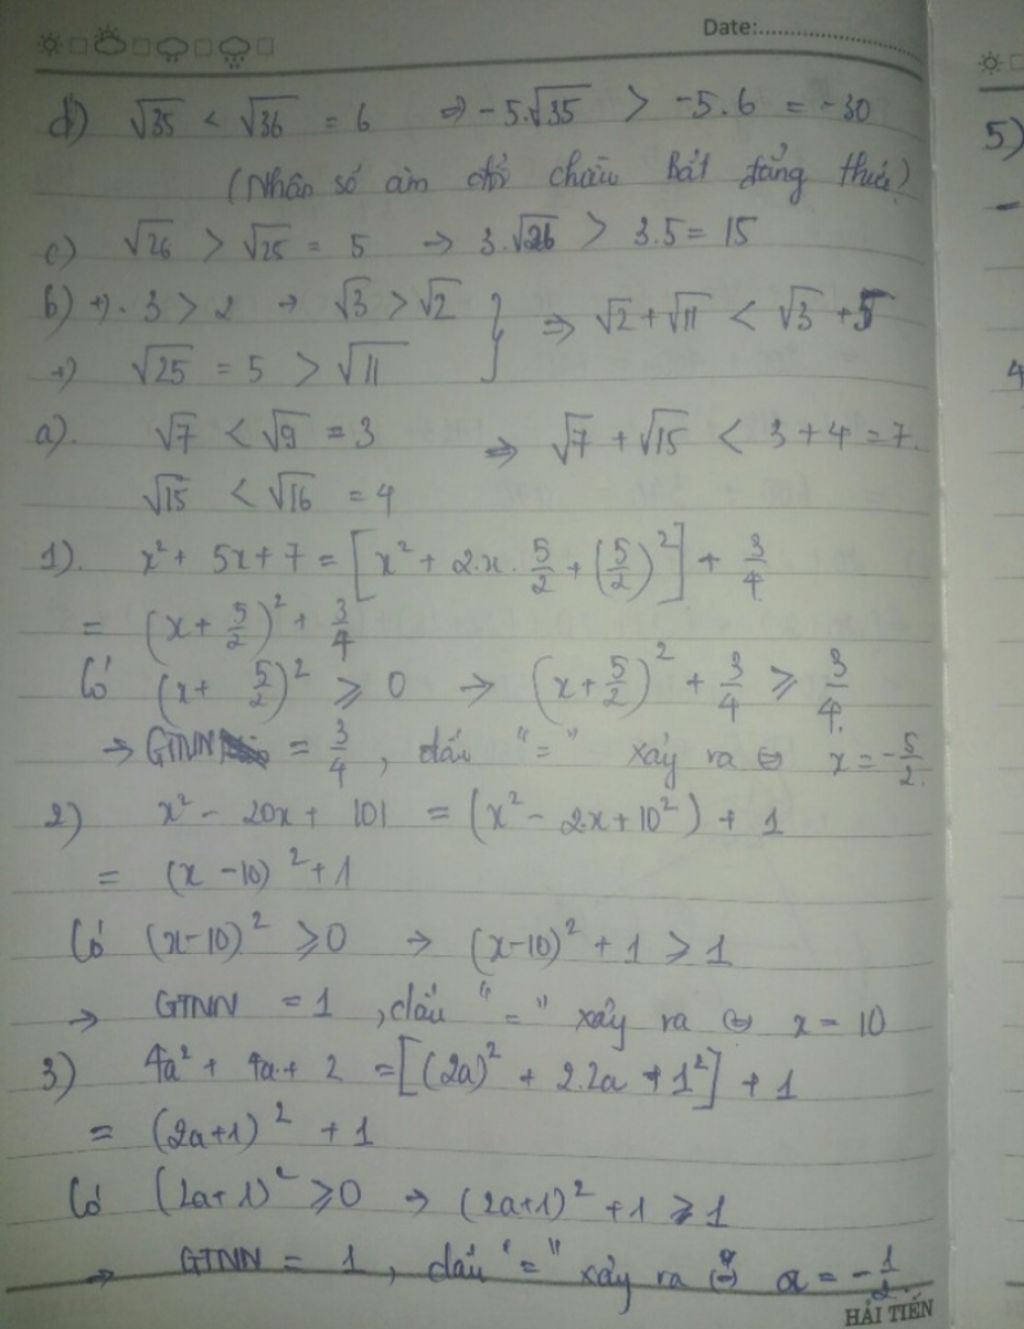 Date:
d) √35 < √36 = 6 ⇒ -5.√35 > -5.6 = -30
(Nhân số âm đổi chiều bất đẳng thức)
c) √26 > √25 = 5 → 3.√26 > 3.5 = 15
b) +). 3 > 2 → √3 > √2 } ⇒ √2 + √11 < √3 + 5
+) √25 = 5 > √11
a). √7 < √9 = 3 ⇒ √7 + √15 < 3 + 4 = 7.
√15 < √16 = 4
1). x² + 5x + 7 = [x² + 2.x.5/2 + (5/2)²] + 3/4
= (x + 5/2)² + 3/4
Có (x + 5/2)² ≥ 0 → (x + 5/2)² + 3/4 ≥ 3/4.
→ GTNN = 3/4, dấu "=" xảy ra ⇔ x = -5/2.
2) x² - 20x + 101 = (x² - 2.x + 10²) + 1
= (x - 10)² + 1
Có (x-10)² ≥ 0 → (x-10)² + 1 ≥ 1
→ GTNN = 1, dấu "=" xảy ra ⇔ x = 10
3) 4a² + 4a + 2 = [(2a)² + 2.2a + 1²] + 1
= (2a+1)² + 1
Có (2a+1)² ≥ 0 → (2a+1)² + 1 ≥ 1
→ GTNN = 1, dấu "=" xảy ra ⇔ a = -1/2.
HẢI TIẾN
5)
4